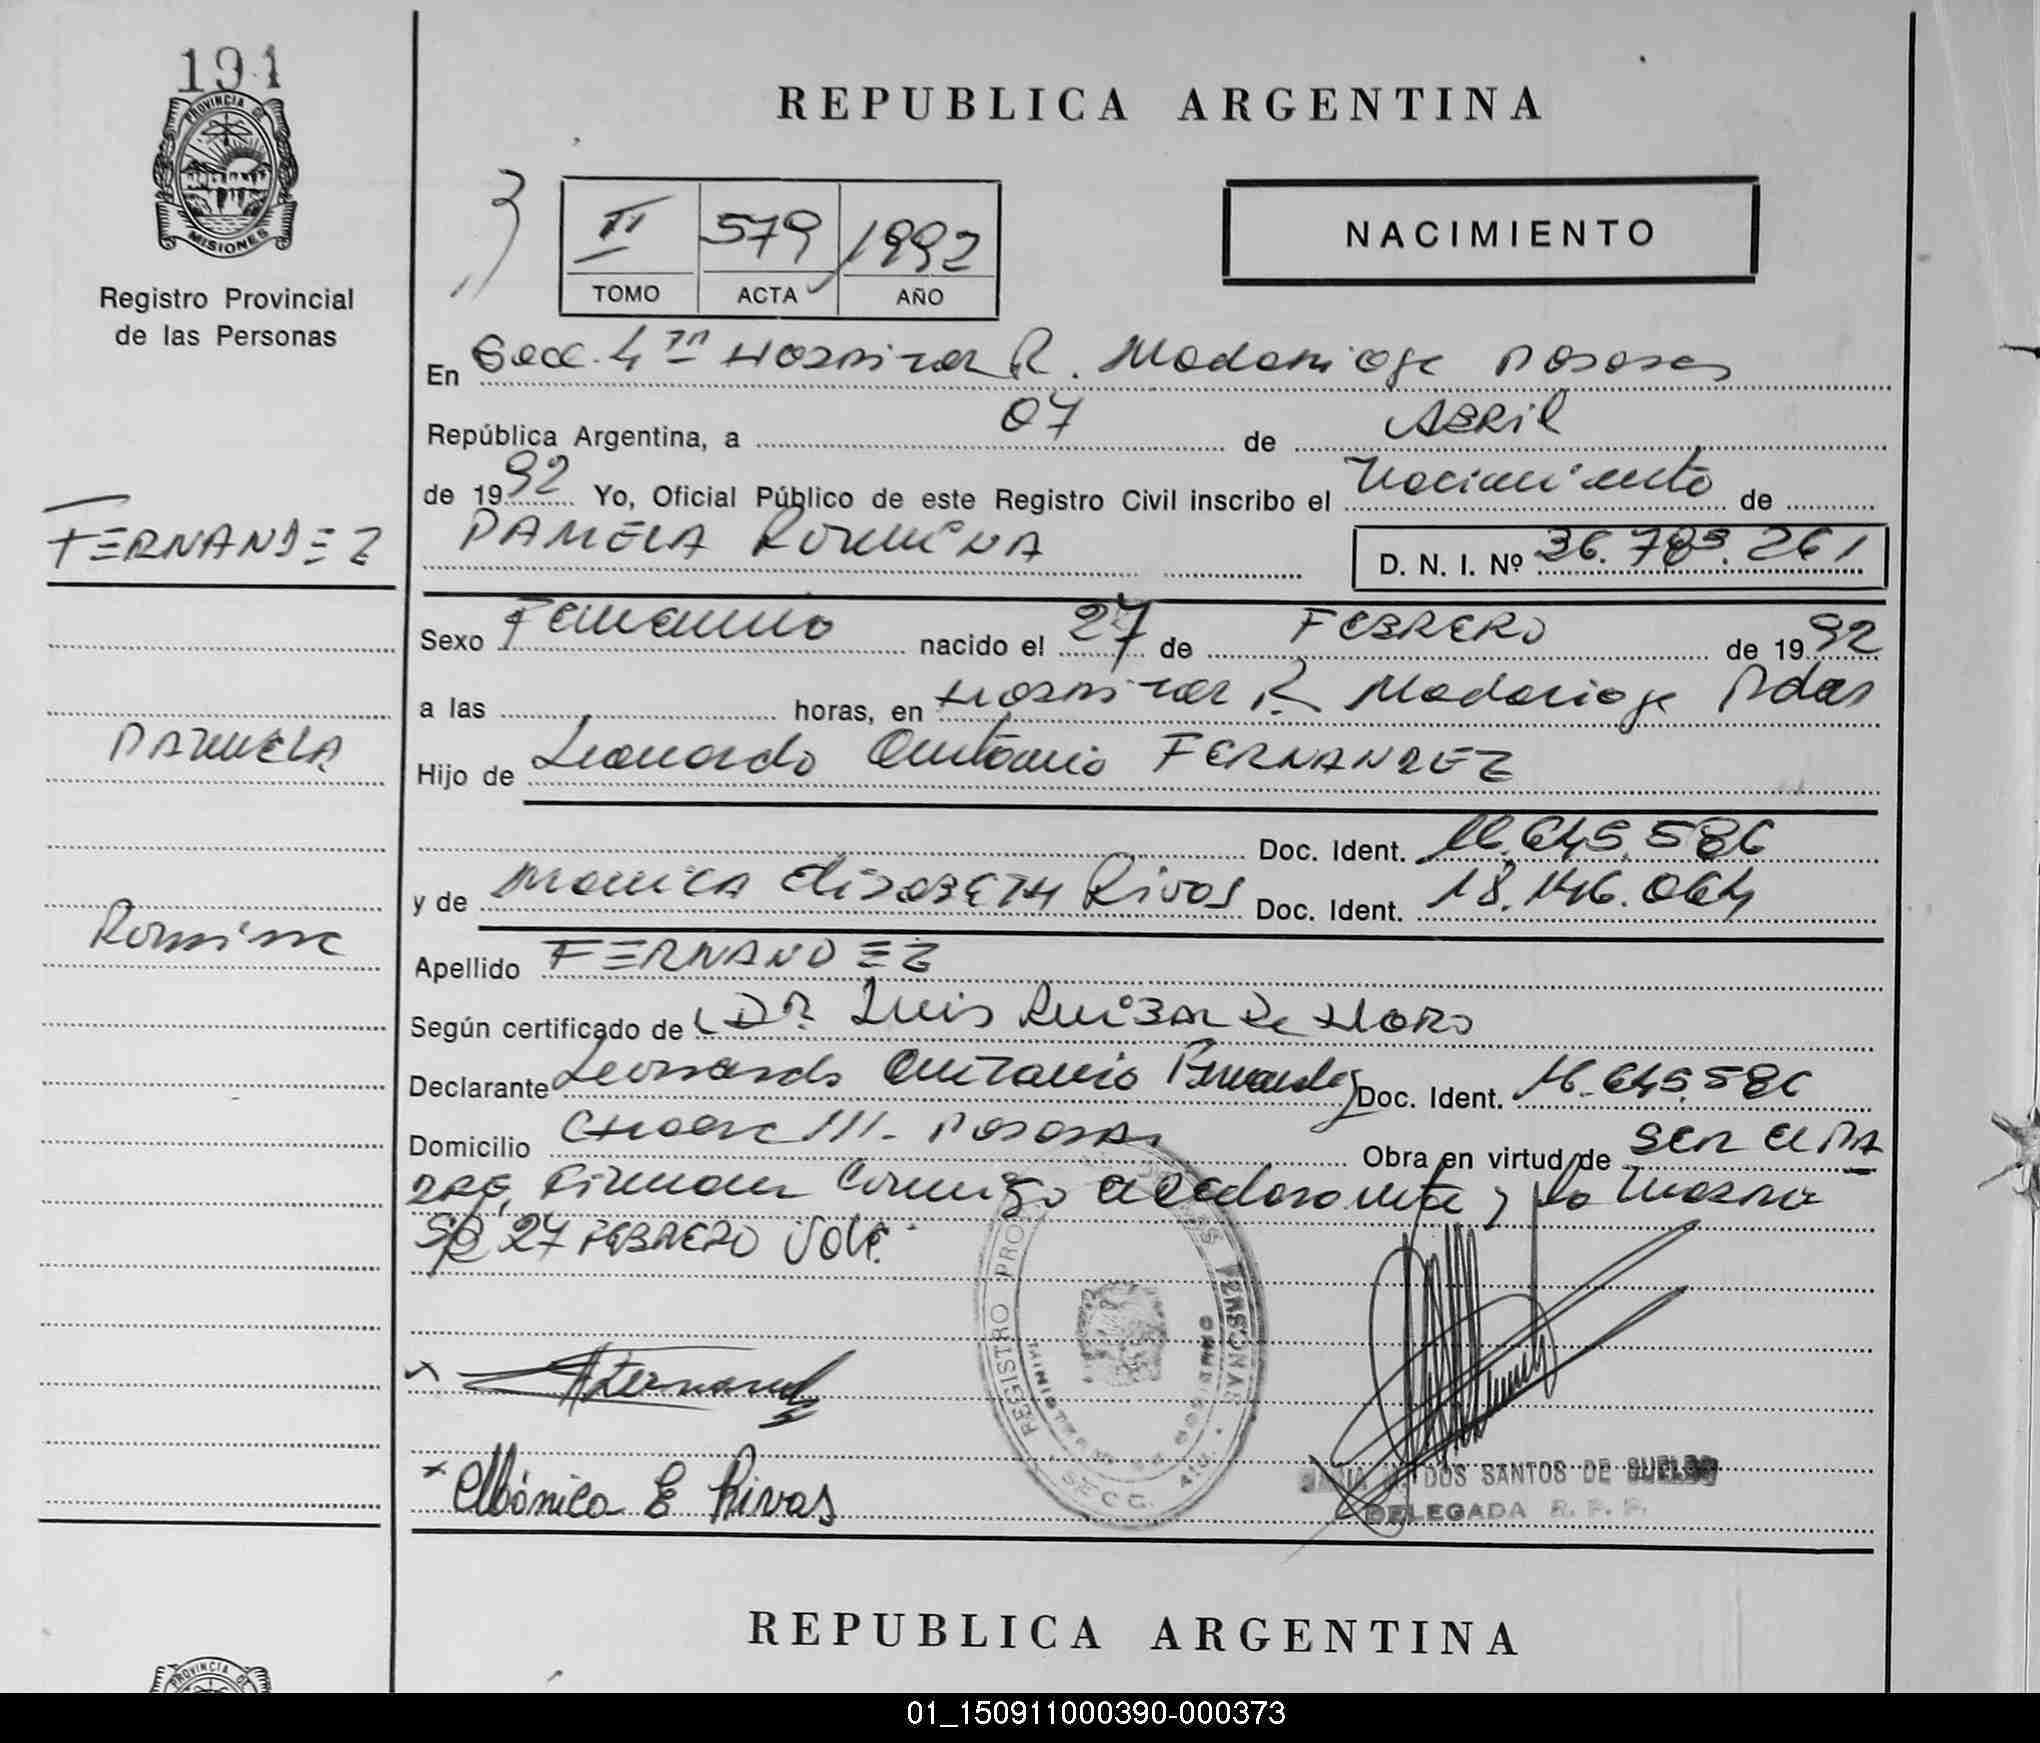 191
PROVINCIA DE
MISIONES
Registro Provincial
de las Personas
REPUBLICA ARGENTINA
II 579 1992
TOMO ACTA AÑO
NACIMIENTO
En Secc. 4ta Hospital R. Madariaga Posadas
República Argentina, a 07 de ABRIL
de 1992 Yo, Oficial Público de este Registro Civil inscribo el Nacimiento de
FERNANDEZ
PAMELA ROMINA D. N. I. Nº 36.783.261
Sexo Femenino nacido el 27 de FEBRERO de 1992
a las horas, en Hospital R. Madariaga Pdas
PAMELA
Hijo de Leonardo Antonio FERNANDEZ
Doc. Ident. 16.645.586
y de MONICA ELISABETH Rivas Doc. Ident. 18.146.064
Romina
Apellido FERNANDEZ
Según certificado de Dr. Luis
Declarante Leonardo Antonio Fernandez Doc. Ident. 16.645.586
Domicilio Chacra 111 - POSADAS Obra en virtud de SER EL PA
DRE, Firman Conmigo el declarante y la Madre
S/R 27 FEBRERO Vale.
Fernandez
Mónica E Rivas
REGISTRO PROV PERSONAS
MINISTERIO DE GOBIERNO
SECC. 4ta.
MARIA DOS SANTOS DE
DELEGADA R. P. P.
REPUBLICA ARGENTINA
PROVINCIA DE
01_150911000390-000373